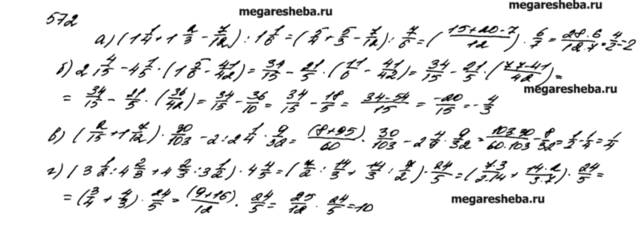 megaresheba.ru megaresheba.ru
572
а) (1 1/4 + 1 2/3 - 7/12) : 1 1/6 = (5/4 + 5/3 - 7/12) : 7/6 = (15+20-7)/12 · 6/7 = 28·6/12·7 = 4/2 = 2
б) 2 4/15 - 4 1/5 · (1 5/6 - 41/42) = 34/15 - 21/5 · (11/6 - 41/42) = 34/15 - 21/5 · (77-41/42) =
= 34/15 - 21/5 · (36/42) = 34/15 - 36/10 = 34/15 - 18/5 = 34-54/15 = -20/15 = -4/3
в) (2/15 + 1 7/12) · 30/103 - 2 : 2 1/4 · 9/32 = (8+95)/60 · 30/103 - 2 · 4/9 · 9/32 = 103·30/60·103 - 8/32 = 1/2 - 1/4 = 1/4
г) (3 1/2 : 4 2/3 + 4 2/3 : 3 1/2) · 4 4/5 = (7/2 : 14/3 + 14/3 : 7/2) · 24/5 = (7·3/2·14 + 14·2/3·7) · 24/5 =
= (3/4 + 4/3) · 24/5 = (9+16)/12 · 24/5 = 25/12 · 24/5 = 10
megaresheba.ru
megaresheba.ru